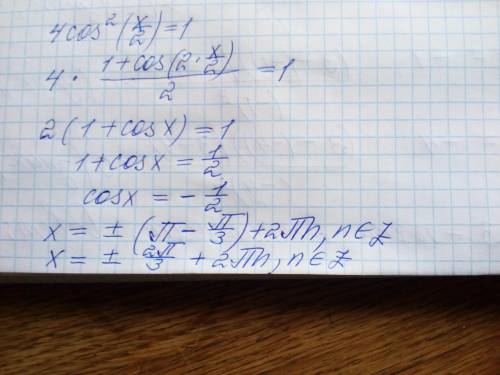 4cos²(x/2)=1
4 · (1+cos(2·x/2))/2 = 1
2(1+cosx)=1
1+cosx = 1/2
cosx = -1/2
x = ± (π - π/3)+2πn, n∈Z
x = ± 2π/3 + 2πn, n∈Z